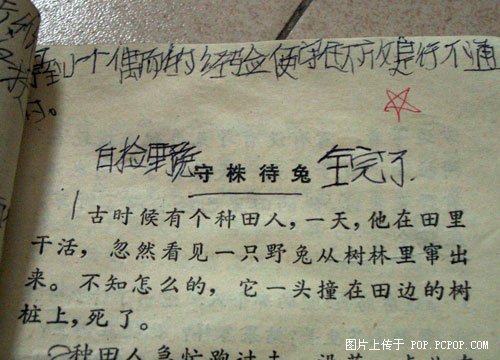 到一个偶而的经验便守住不放是行不通
的。
自捡野兔 守株待兔 全完了
1古时候有个种田人，一天，他在田里
干活，忽然看见一只野兔从树林里窜出
来。不知怎么的，它一头撞在田边的树
桩上，死了。
2种田人急忙跑过去，没花一点力
图片上传于 POP.PCPOP.COM